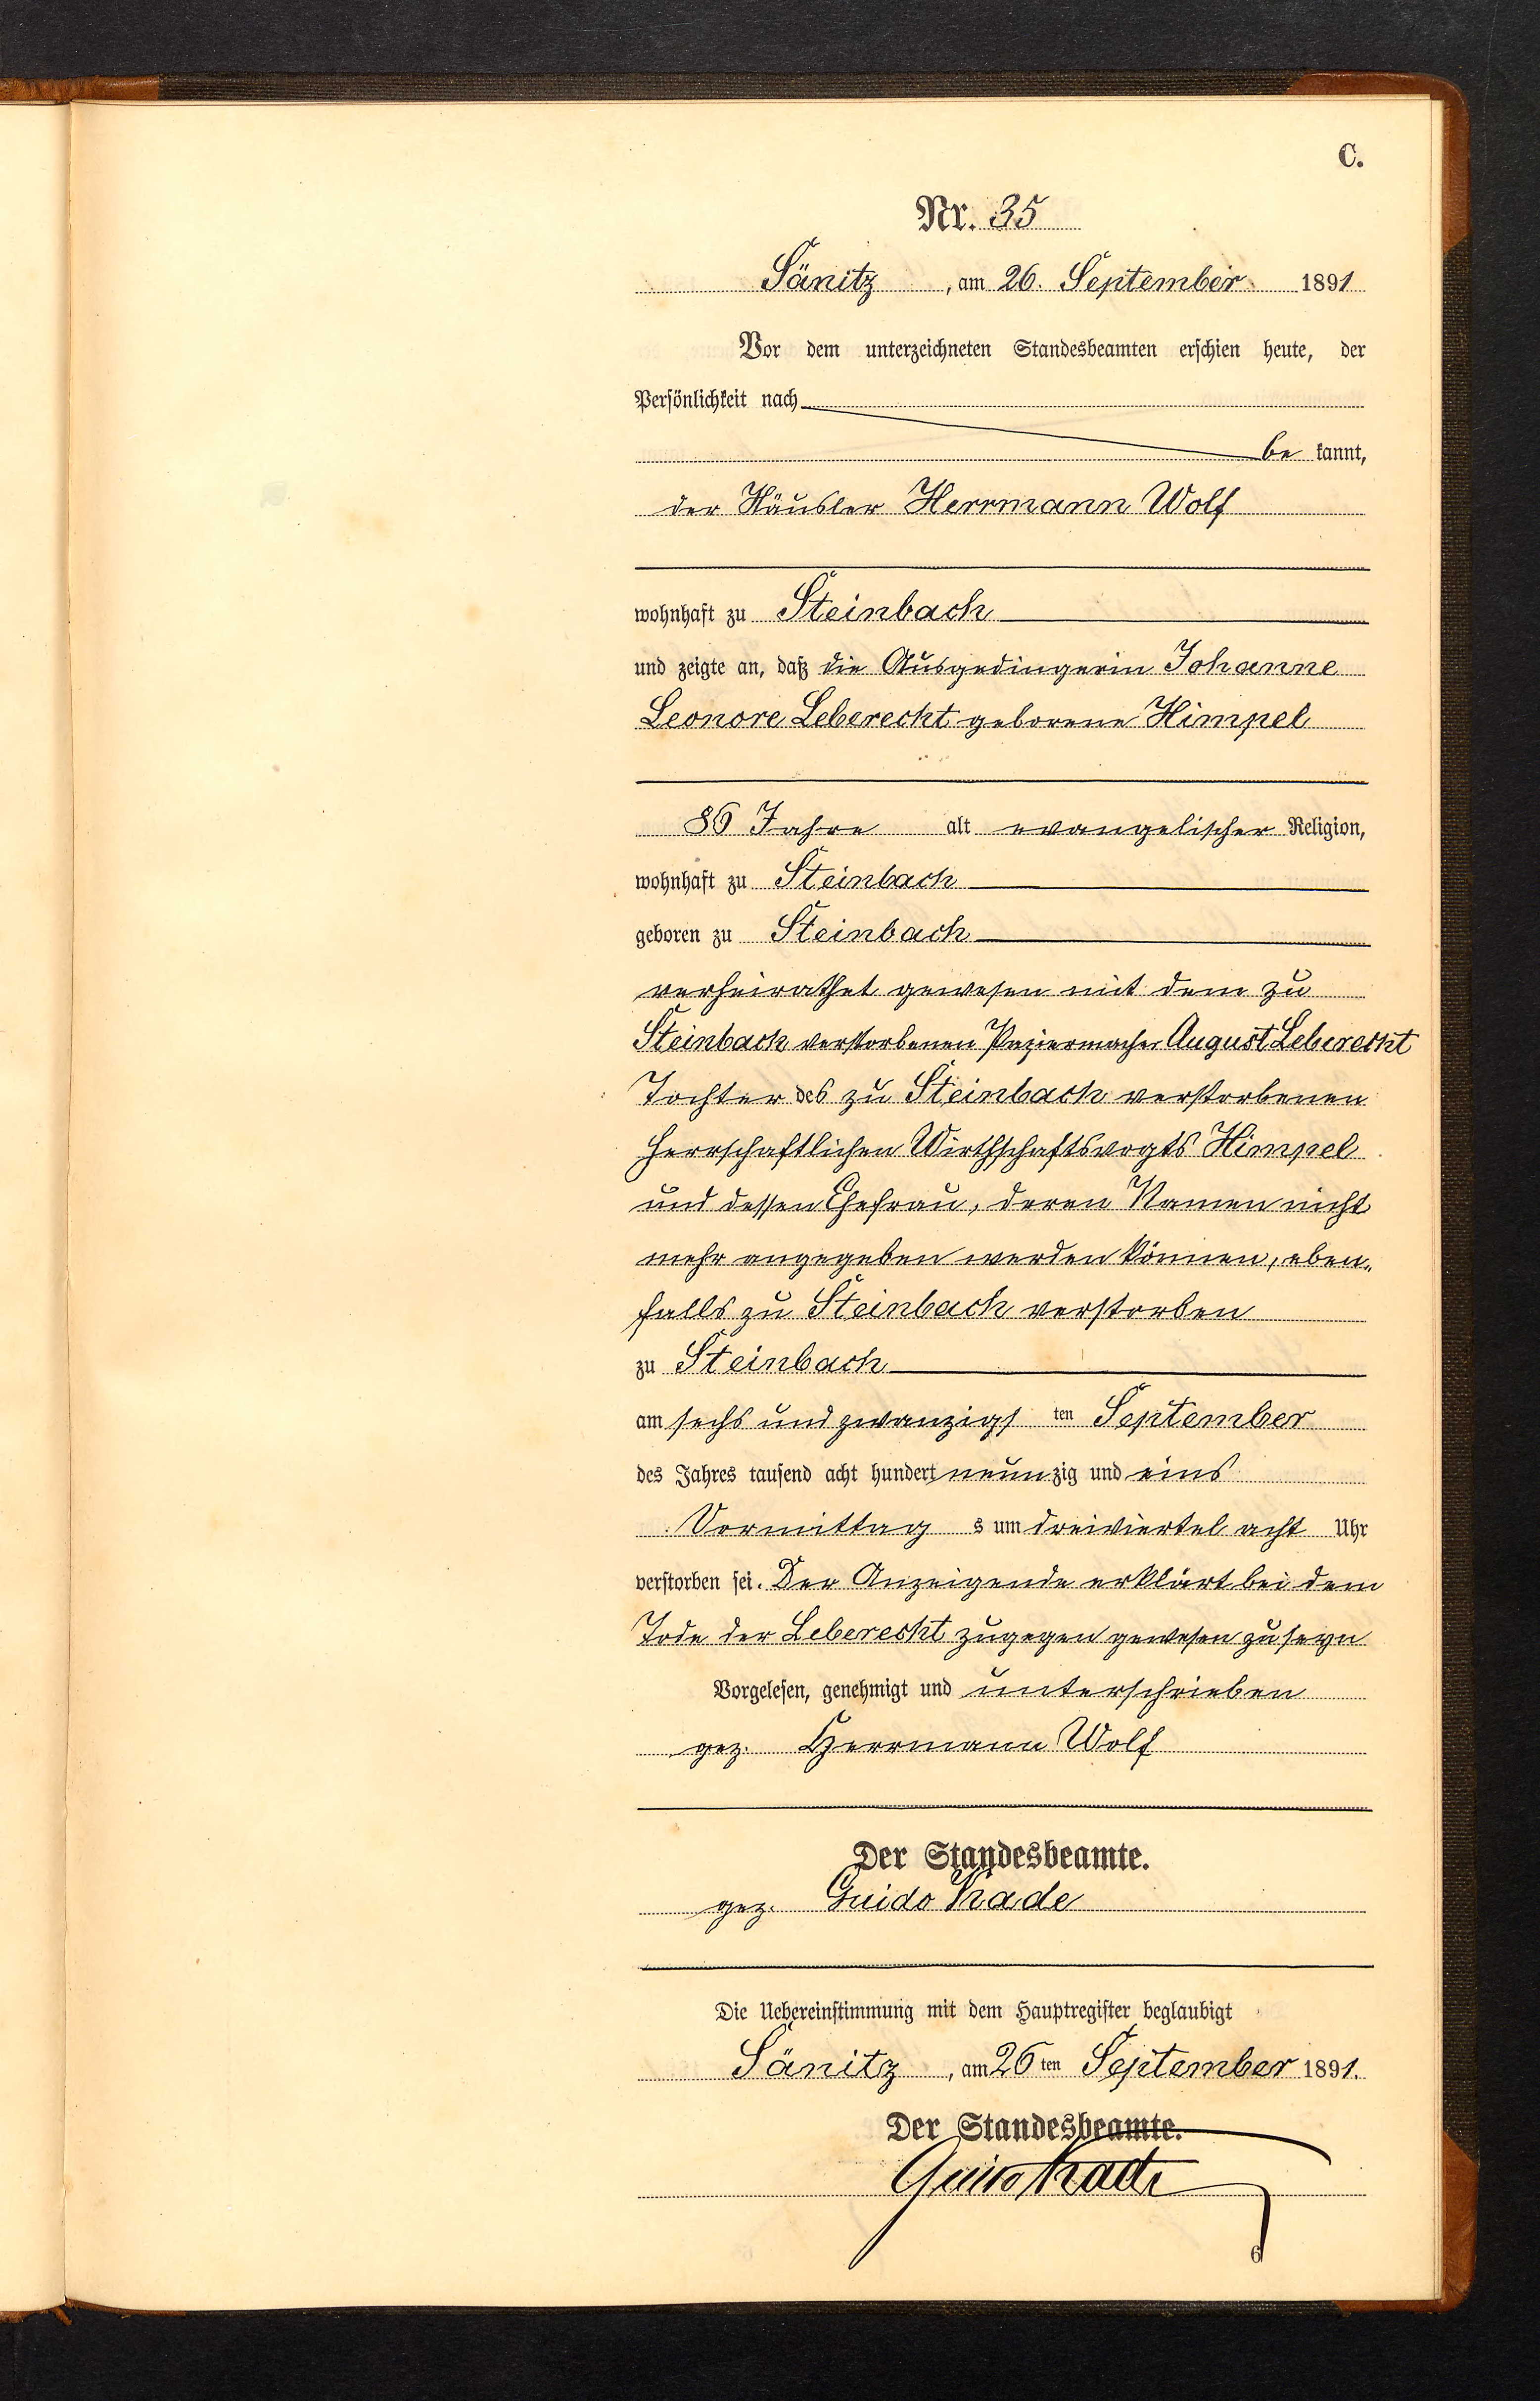 C.
Nr. 35
Sänitz, am 26. September 1891
Vor dem unterzeichneten Standesbeamten erschien heute, der
Persönlichkeit nach
be kannt,
der Häusler Herrmann Wolf
wohnhaft zu Steinbach
und zeigte an, daß die Ausgedingerin Johanne
Leonore Leberecht geborene Himpel
86 Jahre alt evangelischer Religion,
wohnhaft zu Steinbach
geboren zu Steinbach
verheirathet gewesen mit dem zu
Steinbach verstorbenen Papiermacher August Leberecht
Tochter des zu Steinbach verstorbenen
herrschaftlichen Wirthschaftsvogts Himpel
und dessen Ehefrau, deren Namen nicht
mehr angegeben werden können, eben-
falls zu Steinbach verstorben
zu Steinbach
am sechs und zwanzigs ten September
des Jahres tausend acht hundert neunzig und eins
Vormittag s um dreiviertel acht Uhr
verstorben sei. Der Anzeigende erklärt bei dem
Tode der Leberecht zugegen gewesen zu seyn
Vorgelesen, genehmigt und unterschrieben
gez. Herrmann Wolf
Der Standesbeamte.
gez. Guido Kade
Die Uebereinstimmung mit dem Hauptregister beglaubigt
Sänitz, am 26 ten September 1891.
Der Standesbeamte.
Guido Kade
6